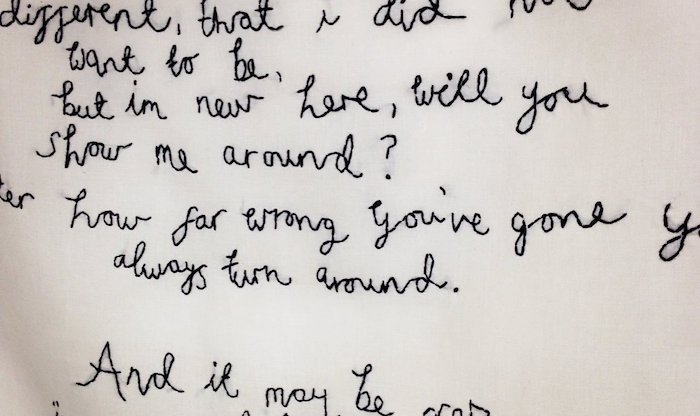 different, that i did not
want to be,
but im new here, will you
show me around?
ter how far wrong you've gone y
always turn around.
And it may be